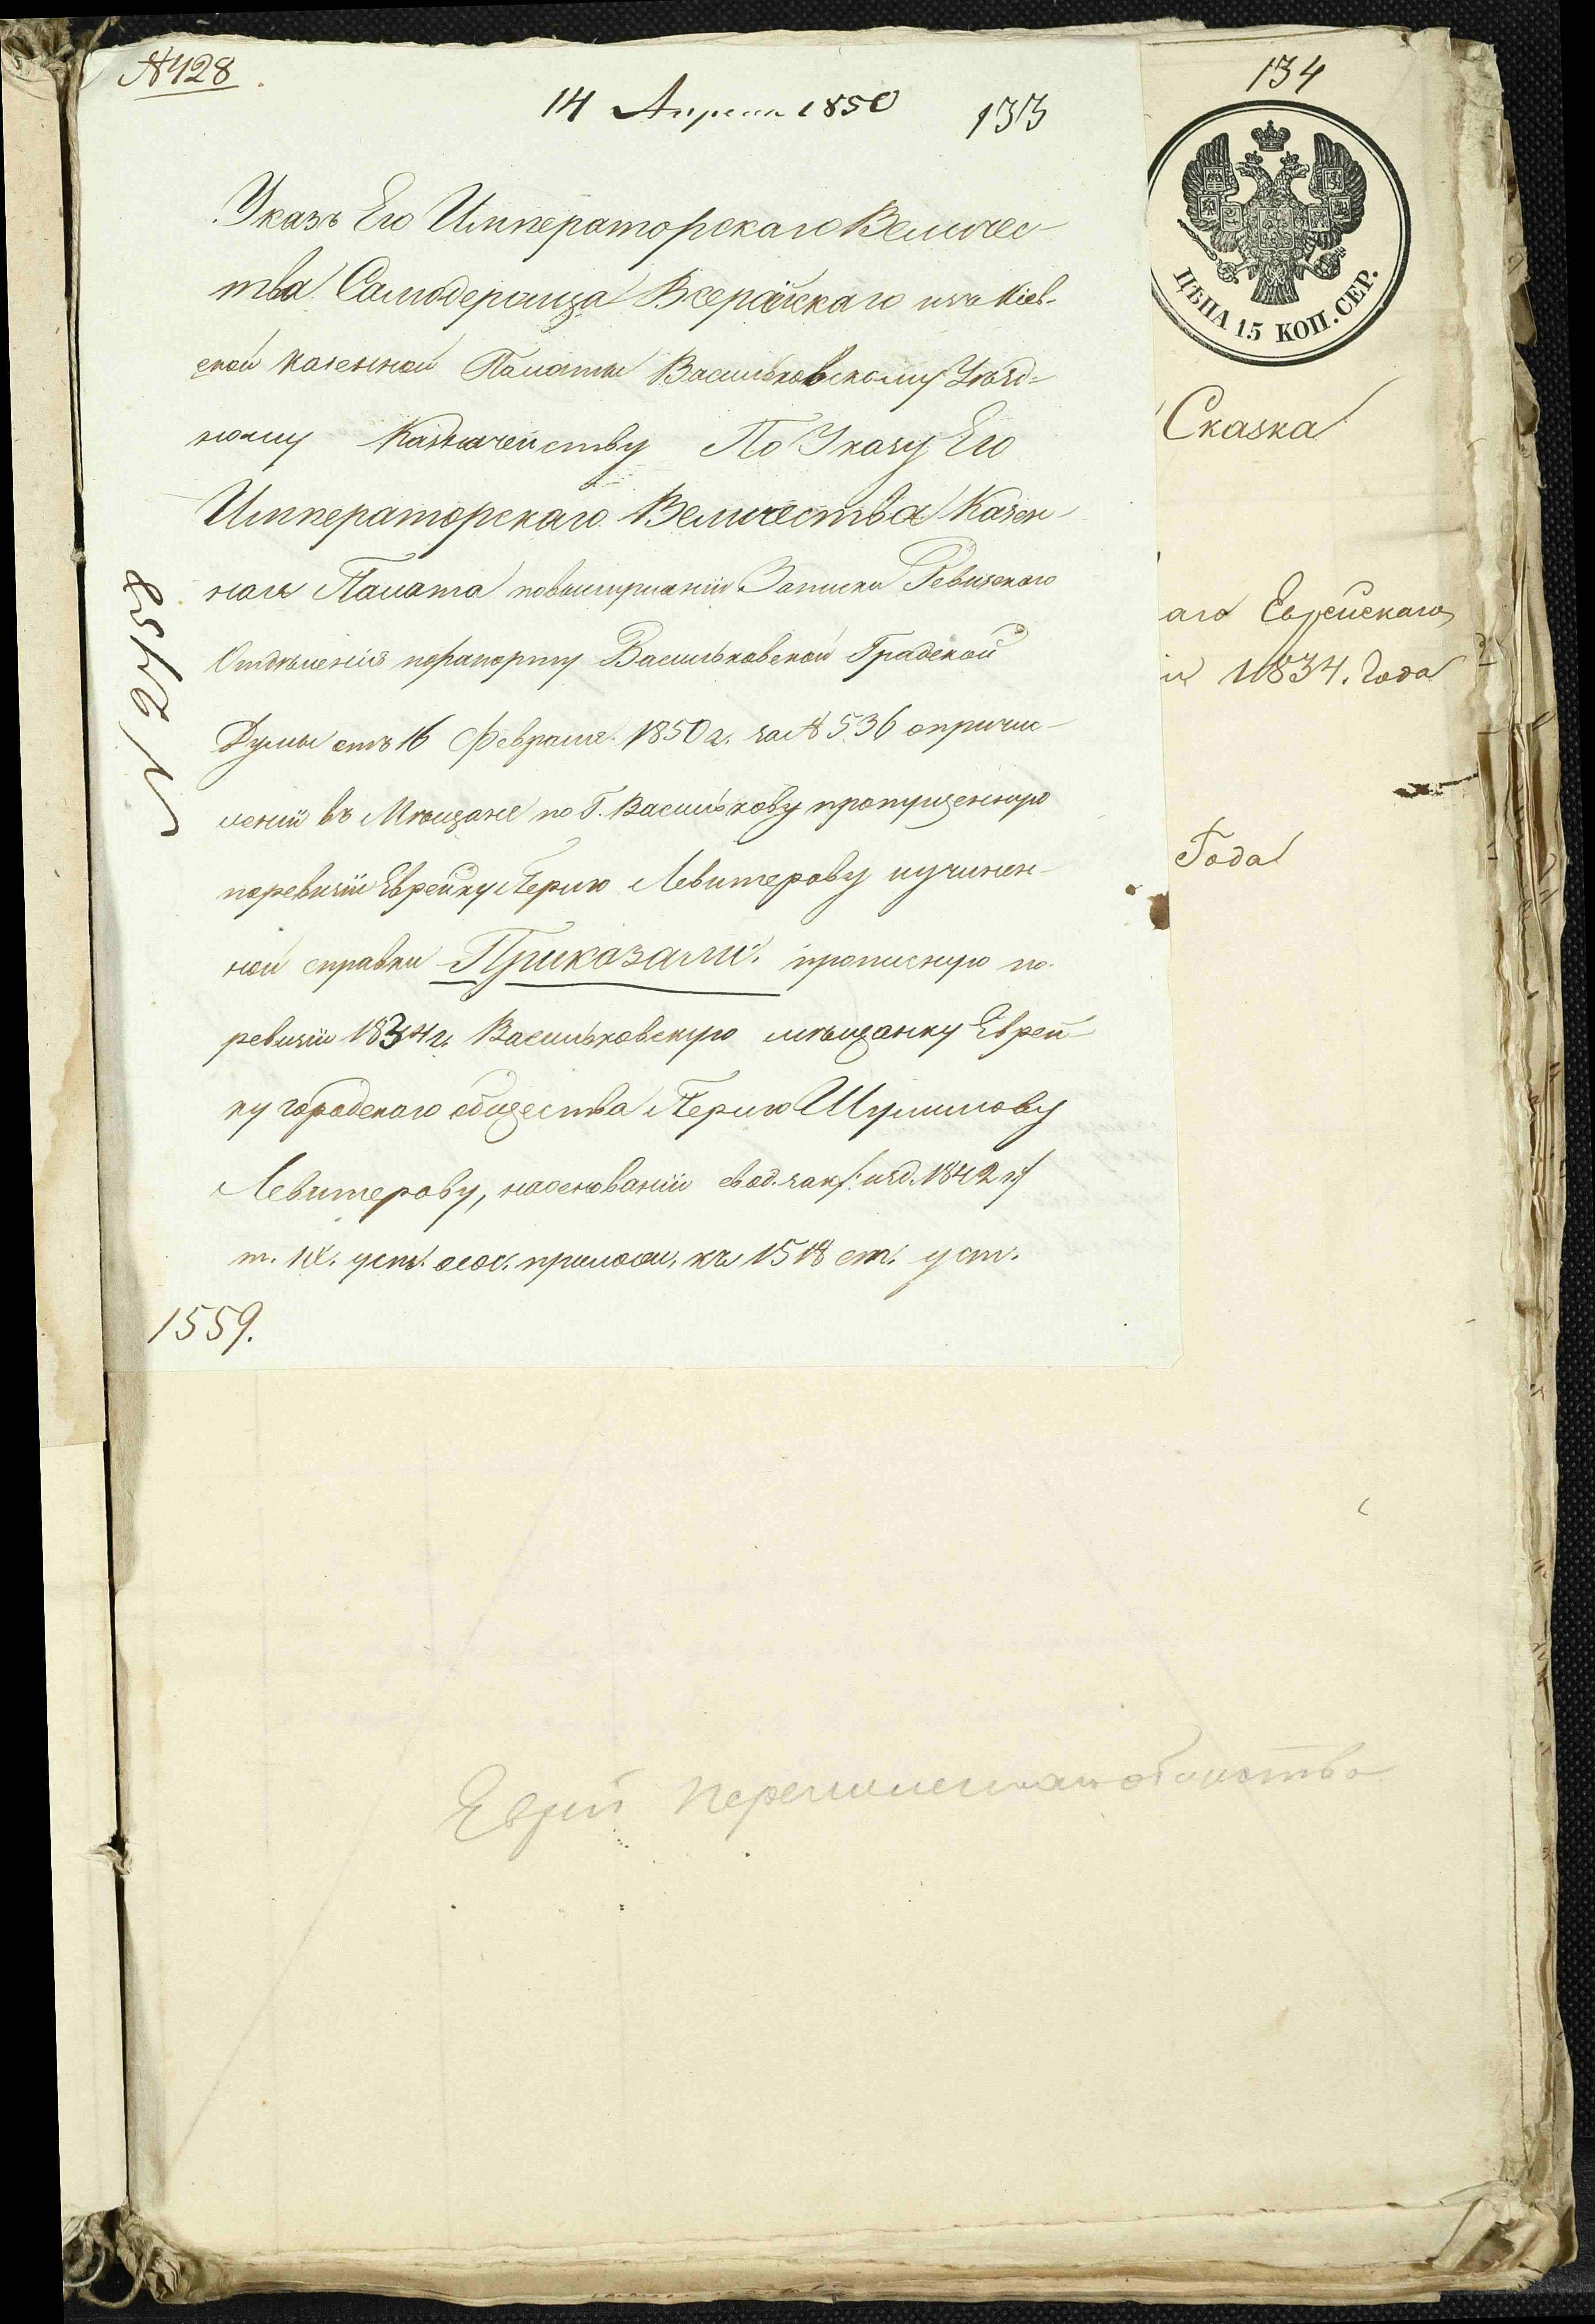 № 428
14 Апреля 1850
133
Указъ Его Императорскаго Величес-
тва Самодержца Всероссійскаго изъ Кіев-
ской Казенной Палаты Васильковскому Уѣзд-
ному Казначейству По Указу Его
Императорскаго Величества Казен-
ная Палата по выслушаніи Записки Ревизскаго
Отдѣленія по рапорту Васильковской Градской
Думы отъ 16 Февраля 1850 г. за № 536 о причис-
леніи въ Мѣщане по Г. Василькову пропущенную
по ревизіи Еврейку Перлю Левитерову и учинен-
ной справки Приказали: прописную по
ревизіи 1834 г. Васильковскую мѣщанку Еврей-
ку городскаго общества Перлю Шулимову
Левитерову, на основаніи свод. зак /: изд. 1842 г :/
т. IX. уст. о сос. прилож. къ 1518 ст. уст.
1559.
134
ЦѢНА 15 КОП. СЕР.
Сказка
аго Еврейскаго
1834. Года
Года
Еврей